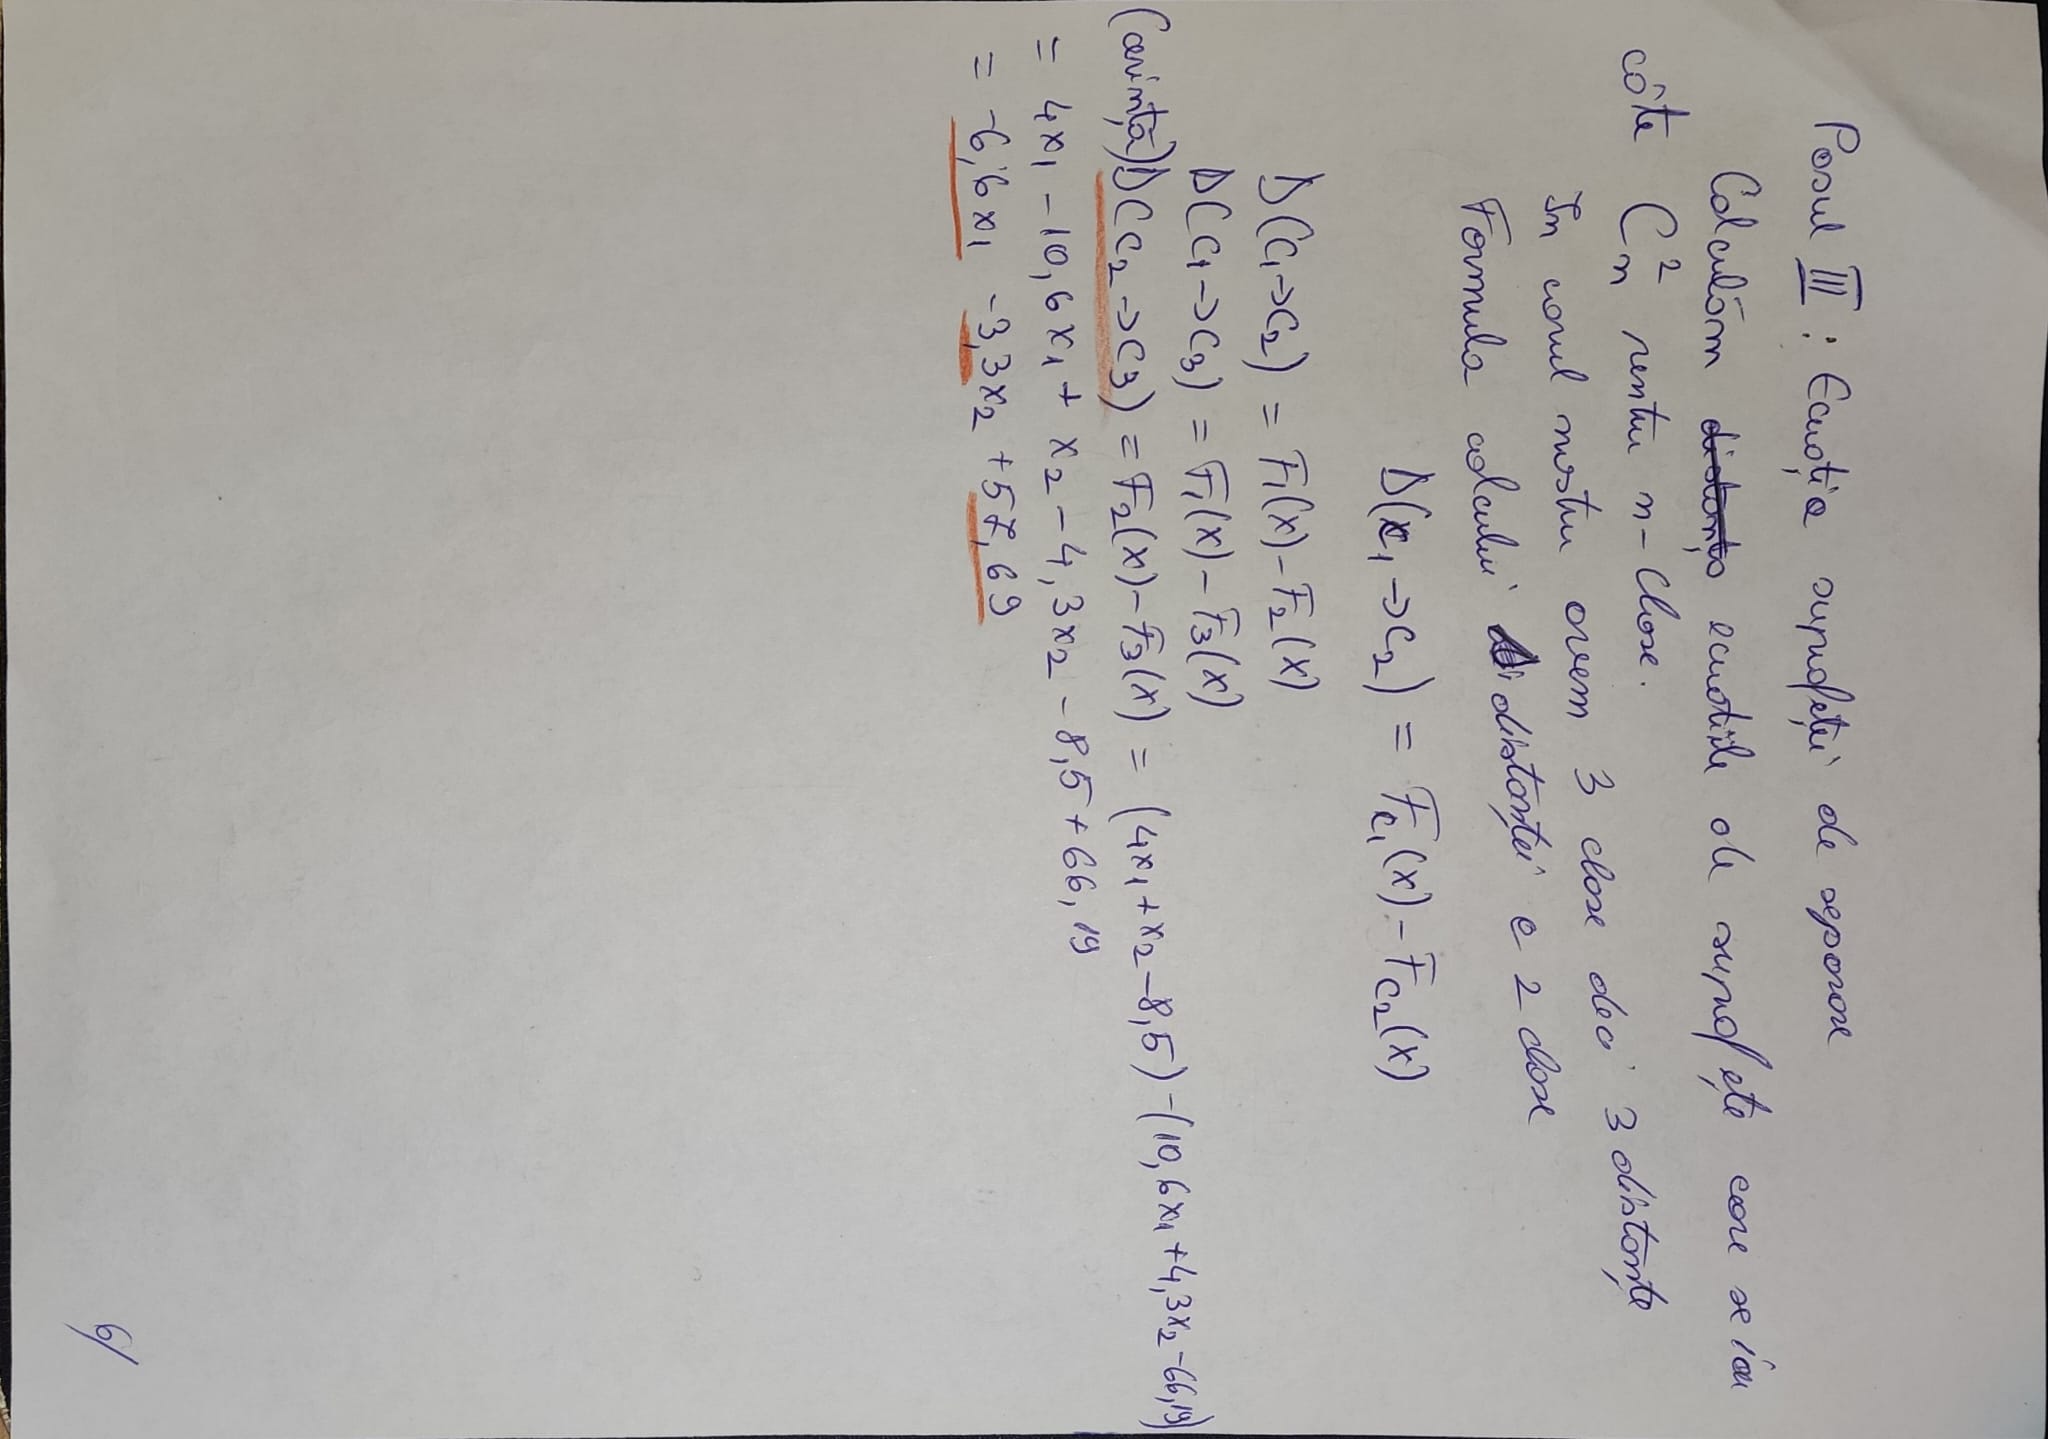 Pasul III : Ecuația suprafeței de separare
Calculăm distanța ecuatiile de suprafețe care se iau
câte C_n^2 pentru n-Clase.
In cazul nostru avem 3 clase deci 3 distanțe
Formula calcului distanței e 2 clase
D(c₁→c₂) = F_c₁(x) - F_c₂(x)
D(C₁→C₂) = F₁(x) - F₂(x)
D(C₁→C₃) = F₁(x) - F₃(x)
(cerință) D(C₂→C₃) = F₂(x) - F₃(x) = (4x₁ + x₂ - 8,5) - (10,6x₁ + 4,3x₂ - 66,19)
= 4x₁ - 10,6x₁ + x₂ - 4,3x₂ - 8,5 + 66,19
= -6,6x₁ - 3,3x₂ + 57,69
6/